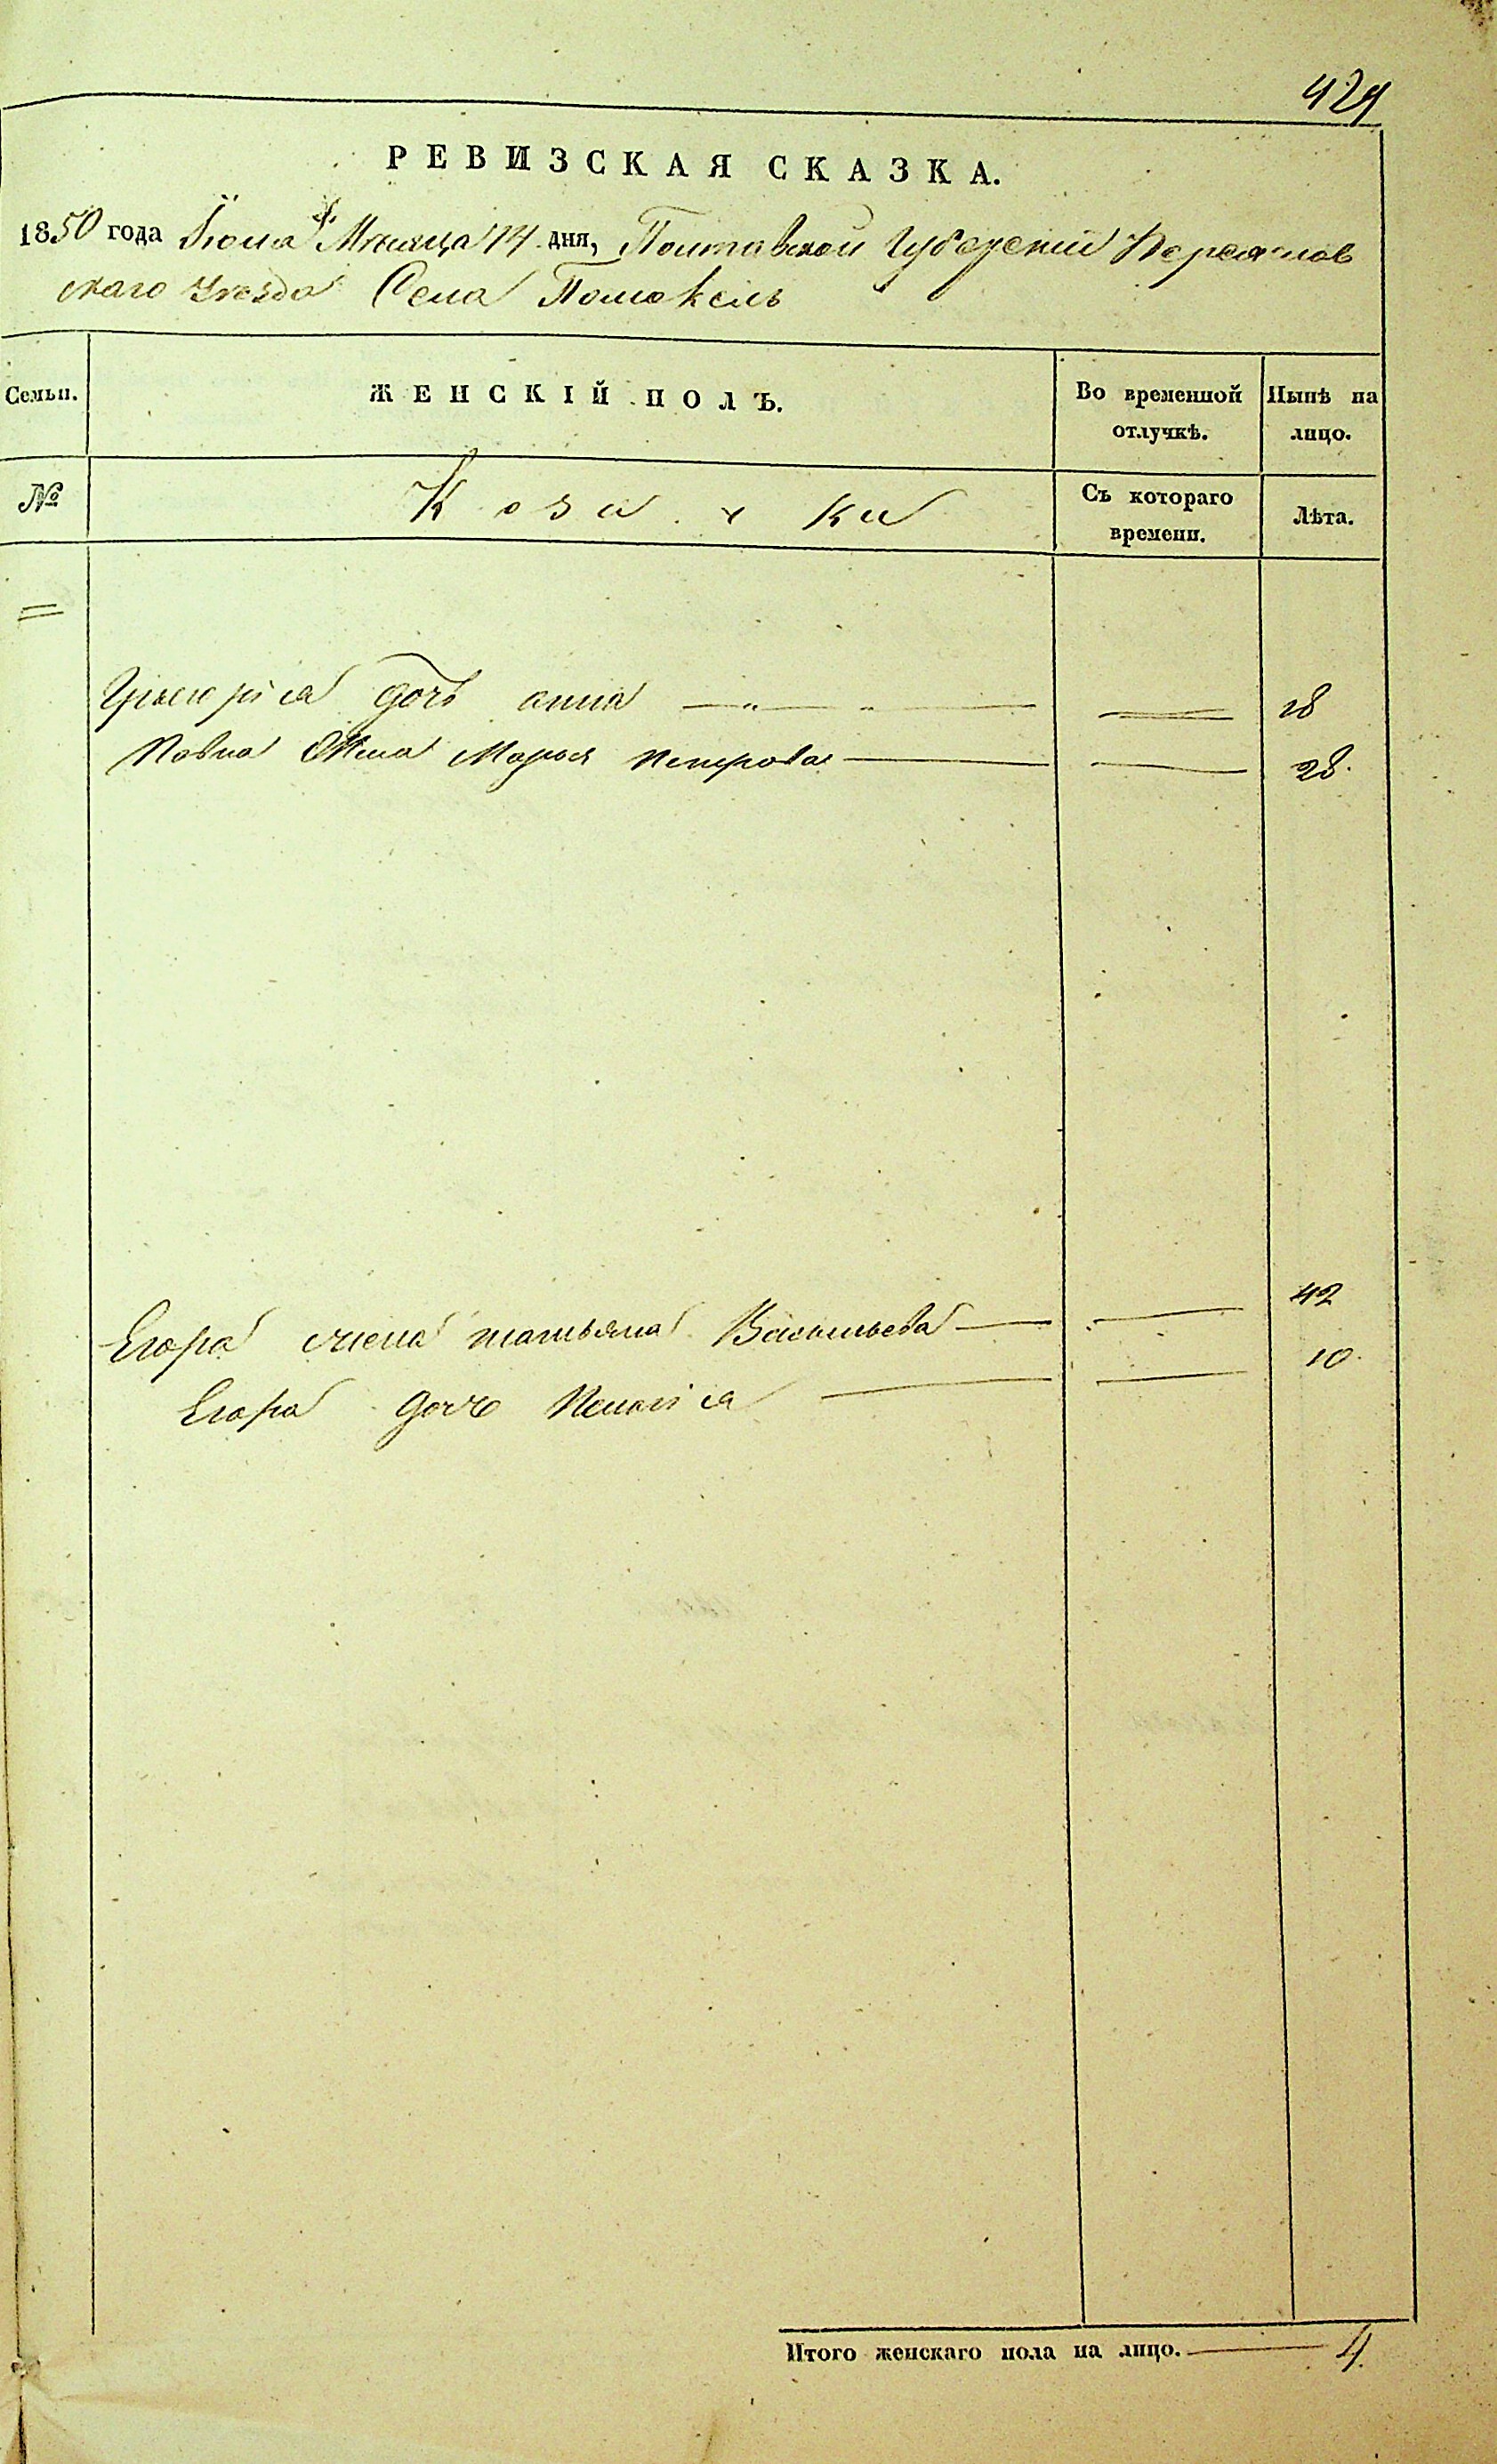 429
РЕВИЗСКАЯ СКАЗКА.
1850 года Іюля Мѣсяца 14 дня, Полтавской Губерніи Переяслов
скаго Уезда Села Помокель
Семьи.
ЖЕНСКІЙ ПОЛЪ.
Во временной отлучкѣ.
Нынѣ на лицо.
№
Козачки
Съ котораго времени.
Лѣта.
дочь анна — „ — „ — 18
Павла Жена Марья Петрова — 28.
Егора жена татьяна Васильева — 42
Егора дочь Пелагія — 10.
Итого женскаго пола на лицо. — 4.